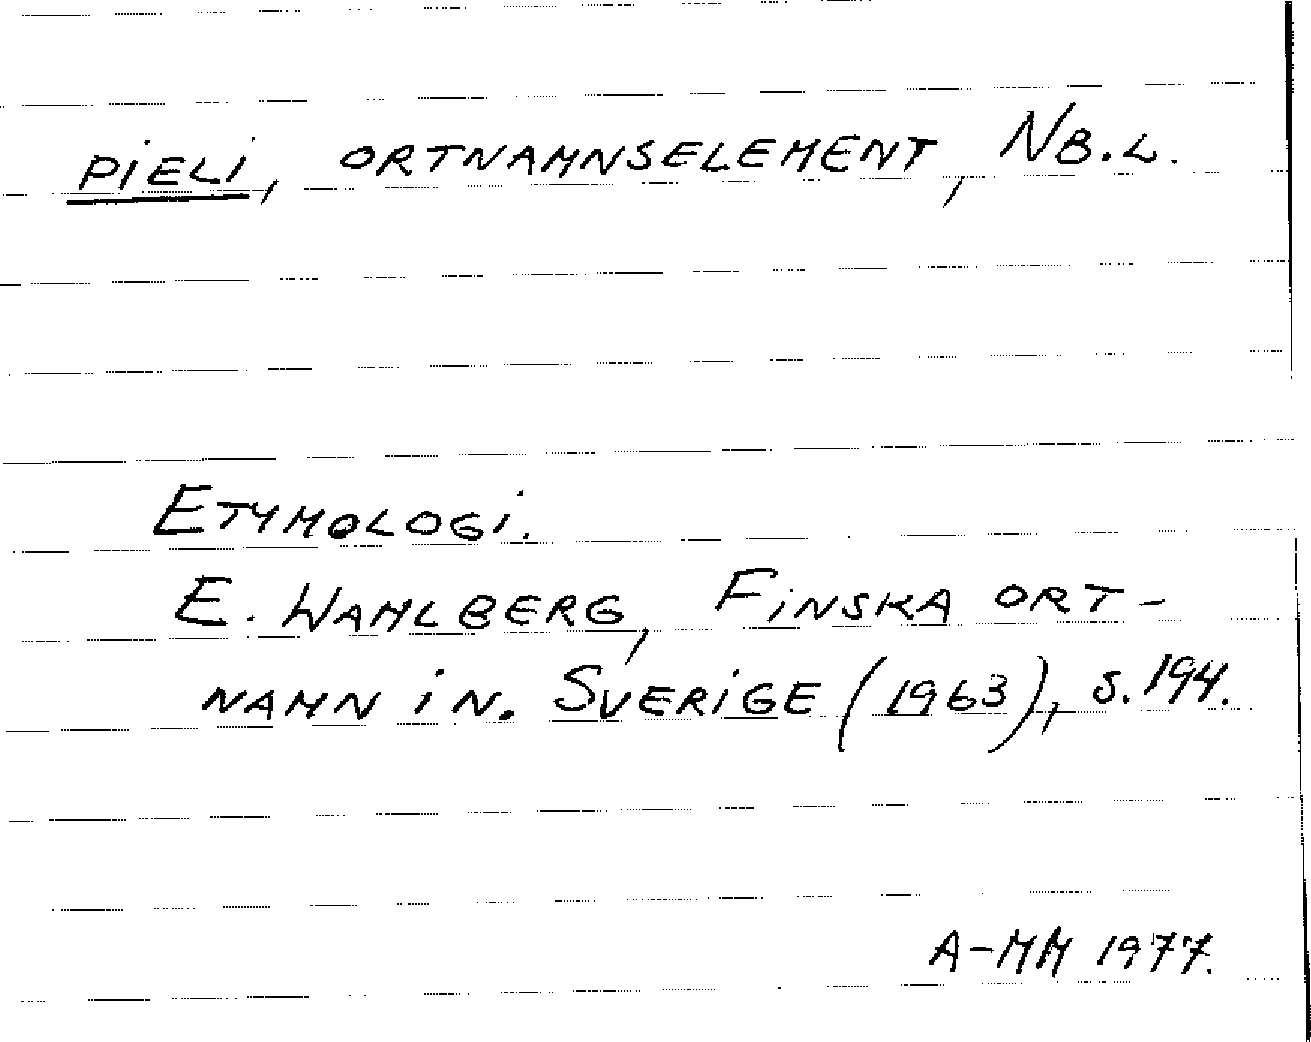 PIELI, ORTNAMNSELEMENT, NB.L.
ETYMOLOGI.
E. WAHLBERG, FINSKA ORT-
NAMN I N. SVERIGE (1963), S. 194.
A-MM 1977.